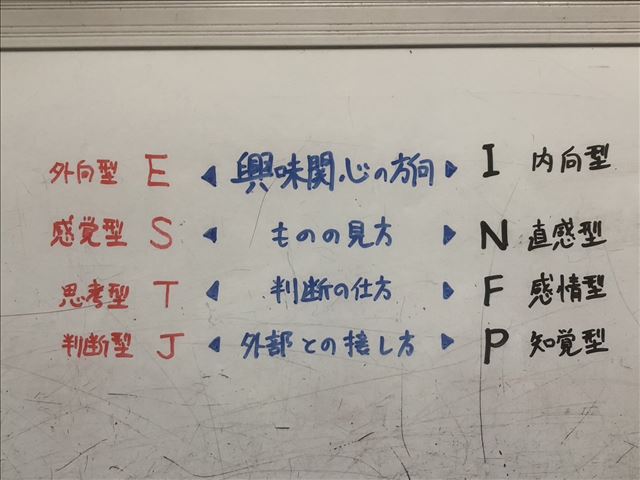 外向型 E ◀ 興味関心の方向 ▶ I 内向型
感覚型 S ◀ ものの見方 ▶ N 直感型
思考型 T ◀ 判断の仕方 ▶ F 感情型
判断型 J ◀ 外部との接し方 ▶ P 知覚型